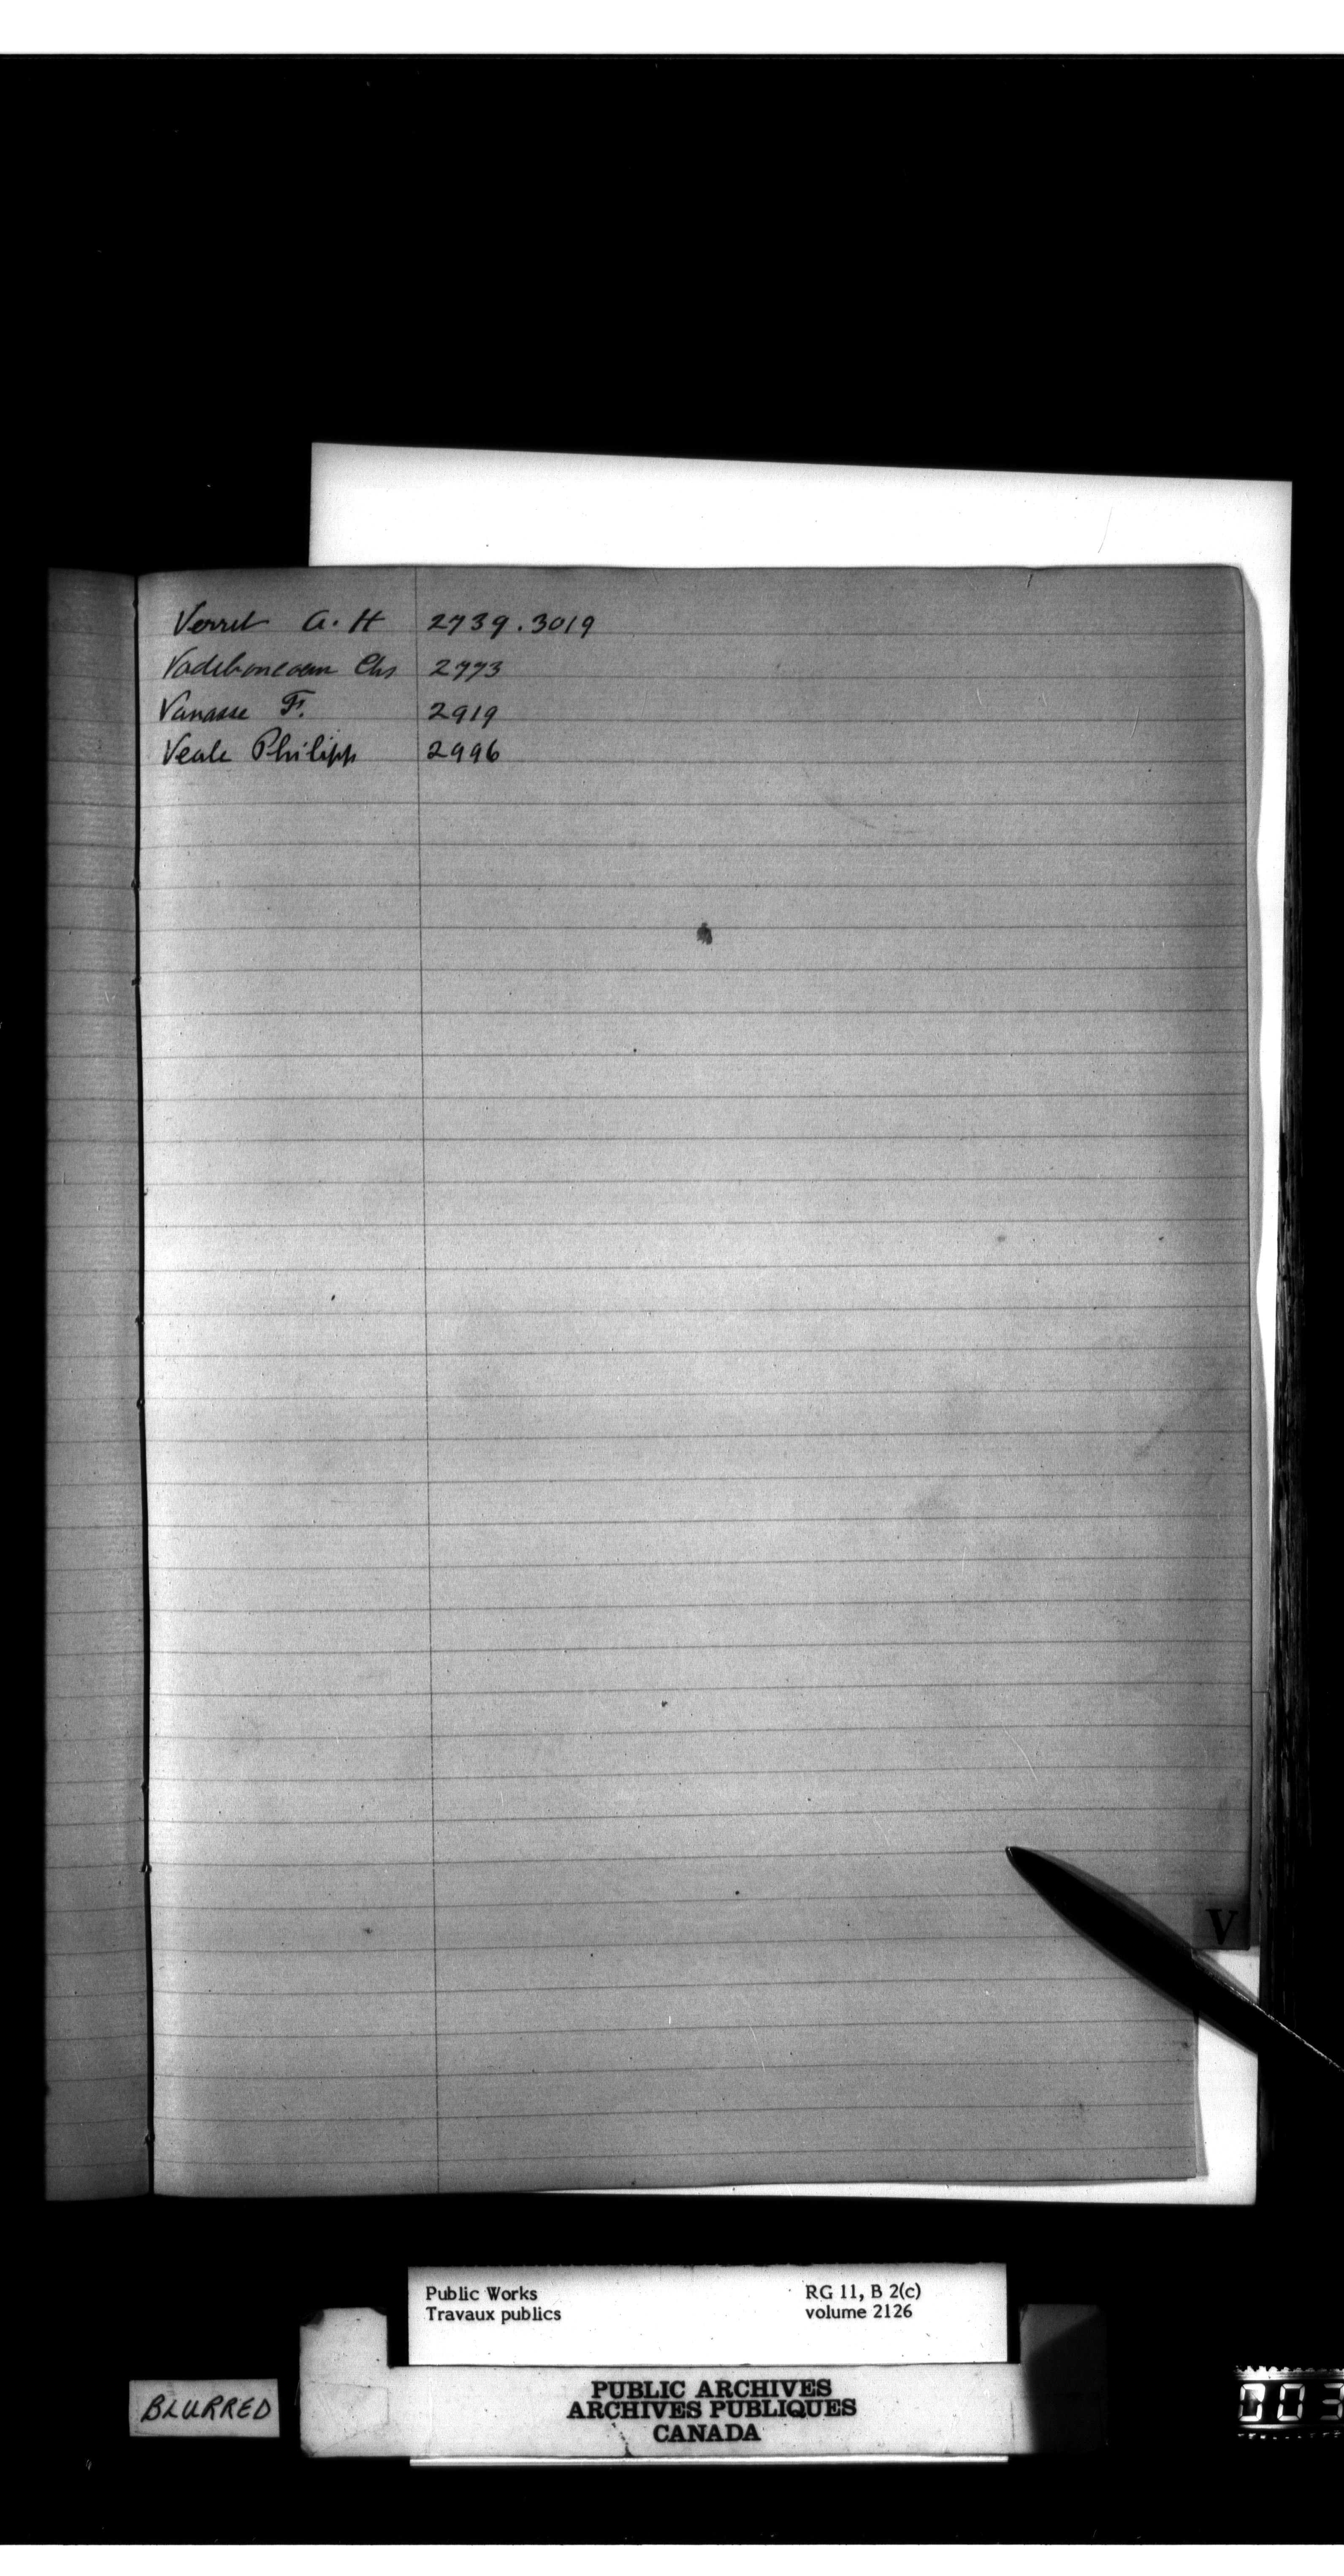 Verret A. H 2739. 3019
Vadeboncoeur Chs 2773
Vanasse F. 2919
Veale Philipp 2996
V
Public Works RG 11, B 2(c)
Travaux publics volume 2126
PUBLIC ARCHIVES
ARCHIVES PUBLIQUES
CANADA
BLURRED
003